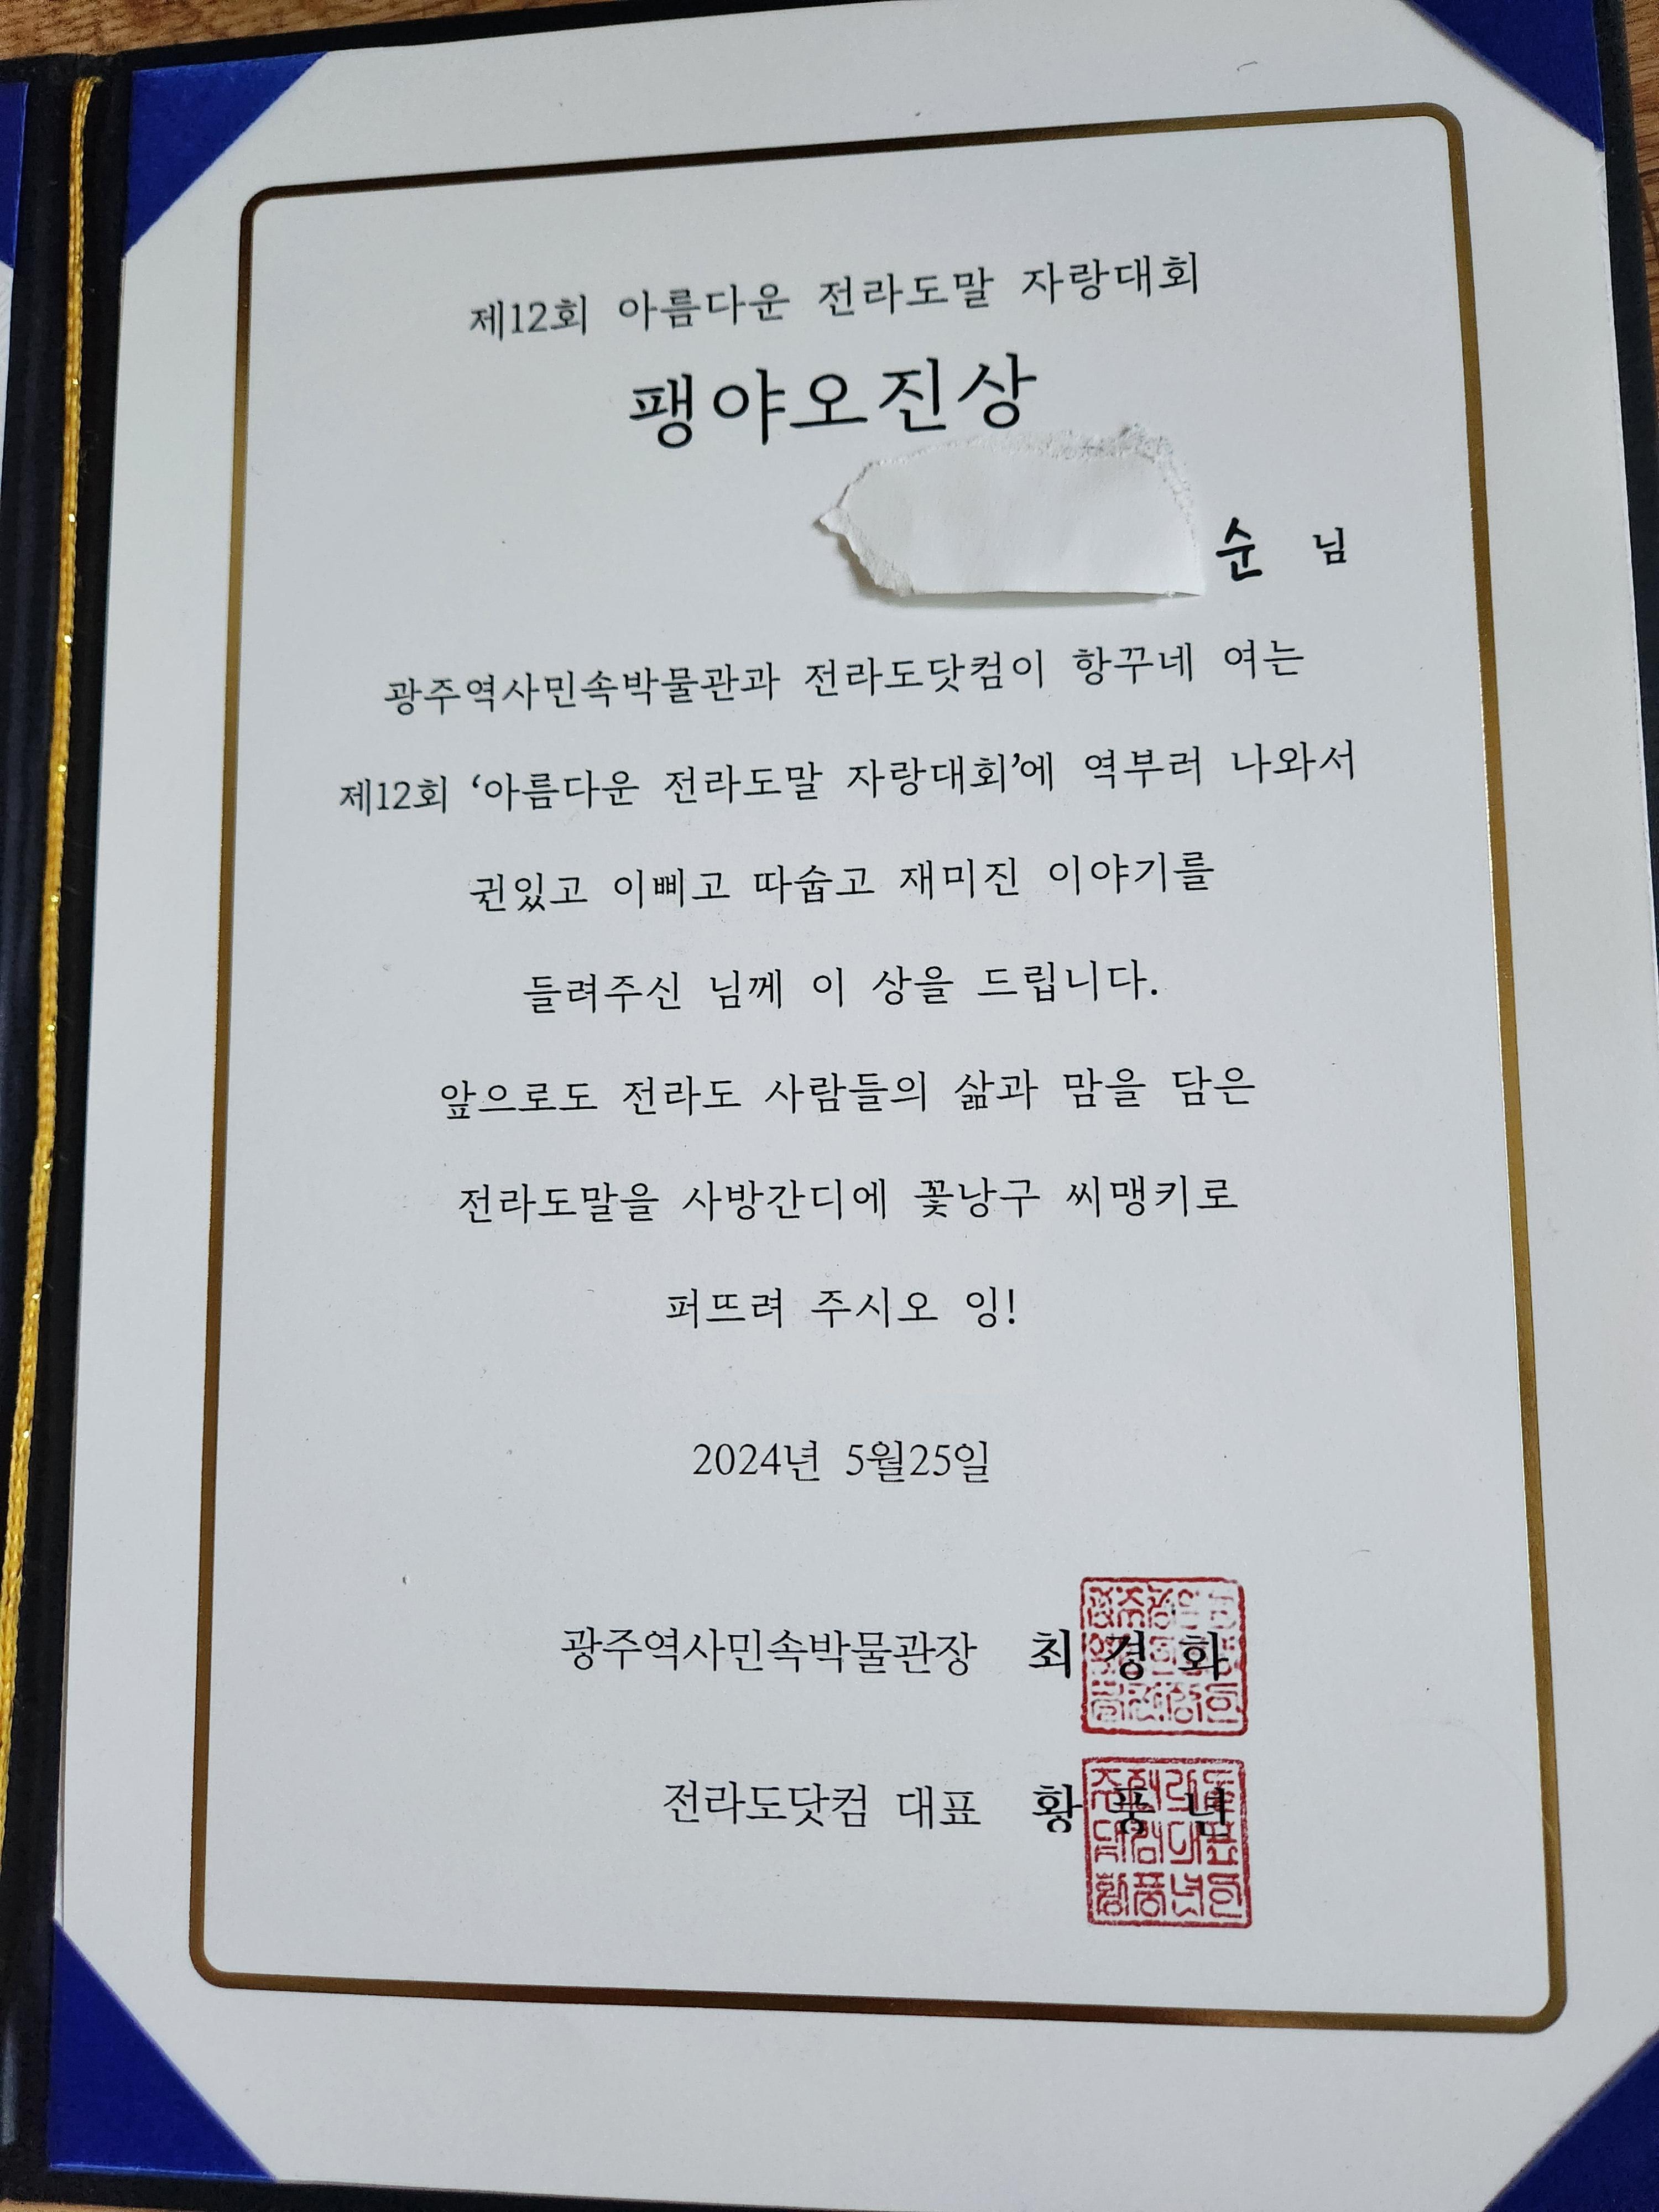 제12회 아름다운 전라도말 자랑대회
팽야오진상
순 님
광주역사민속박물관과 전라도닷컴이 항꾸네 여는
제12회 ‘아름다운 전라도말 자랑대회’에 역부러 나와서
귄있고 이삐고 따숩고 재미진 이야기를
들려주신 님께 이 상을 드립니다.
앞으로도 전라도 사람들의 삶과 맘을 담은
전라도말을 사방간디에 꽃낭구 씨맹키로
퍼뜨려 주시오 잉!
2024년 5월25일
광주역사민속박물관장 최 경 화
전라도닷컴 대표 황 풍 년